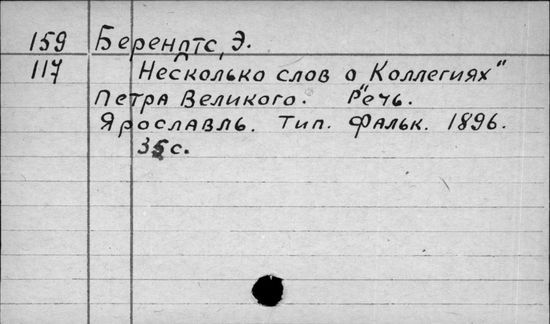 159 Берендтс, Э.
117 Несколько слов о „Коллегиях"
Петра Великого. Речь.
Ярославль. Тип. Фальк. 1896.
35 с.